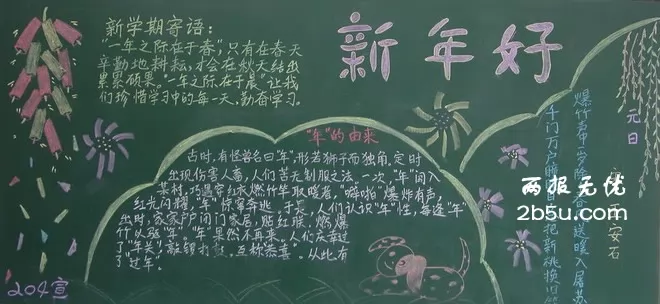 新学期寄语:
“一年之际在于春”,只有在春天
辛勤地耕耘,才会在秋天结出
累累硕果。“一年之际在于晨”让我
们珍惜学习中的每一天、勤奋学习。
新年好
“年”的由来
古时,有怪兽名曰“年”,形若狮子而独角,定时
出现伤害人畜,人们苦无制服之法。一次,“年”闯入
某村,巧遇穿红衣燃竹竿取暖者,“噼啪”爆炸有声,
红光闪耀,“年”惊窜奔逃。于是,人们认识“年”性,每逢“年”
出时,家家户户闭门家居,贴红联,燃爆
竹以驱“年”。“年”果然不再来。人们庆幸过
了“年关”,敲锣打鼓,互称恭喜。从此有
了“过年”。
元日
王安石
爆竹声中一岁除
送暖入屠苏
千门万户
把新桃换旧符
204宣
两报无忧
2b5u.com